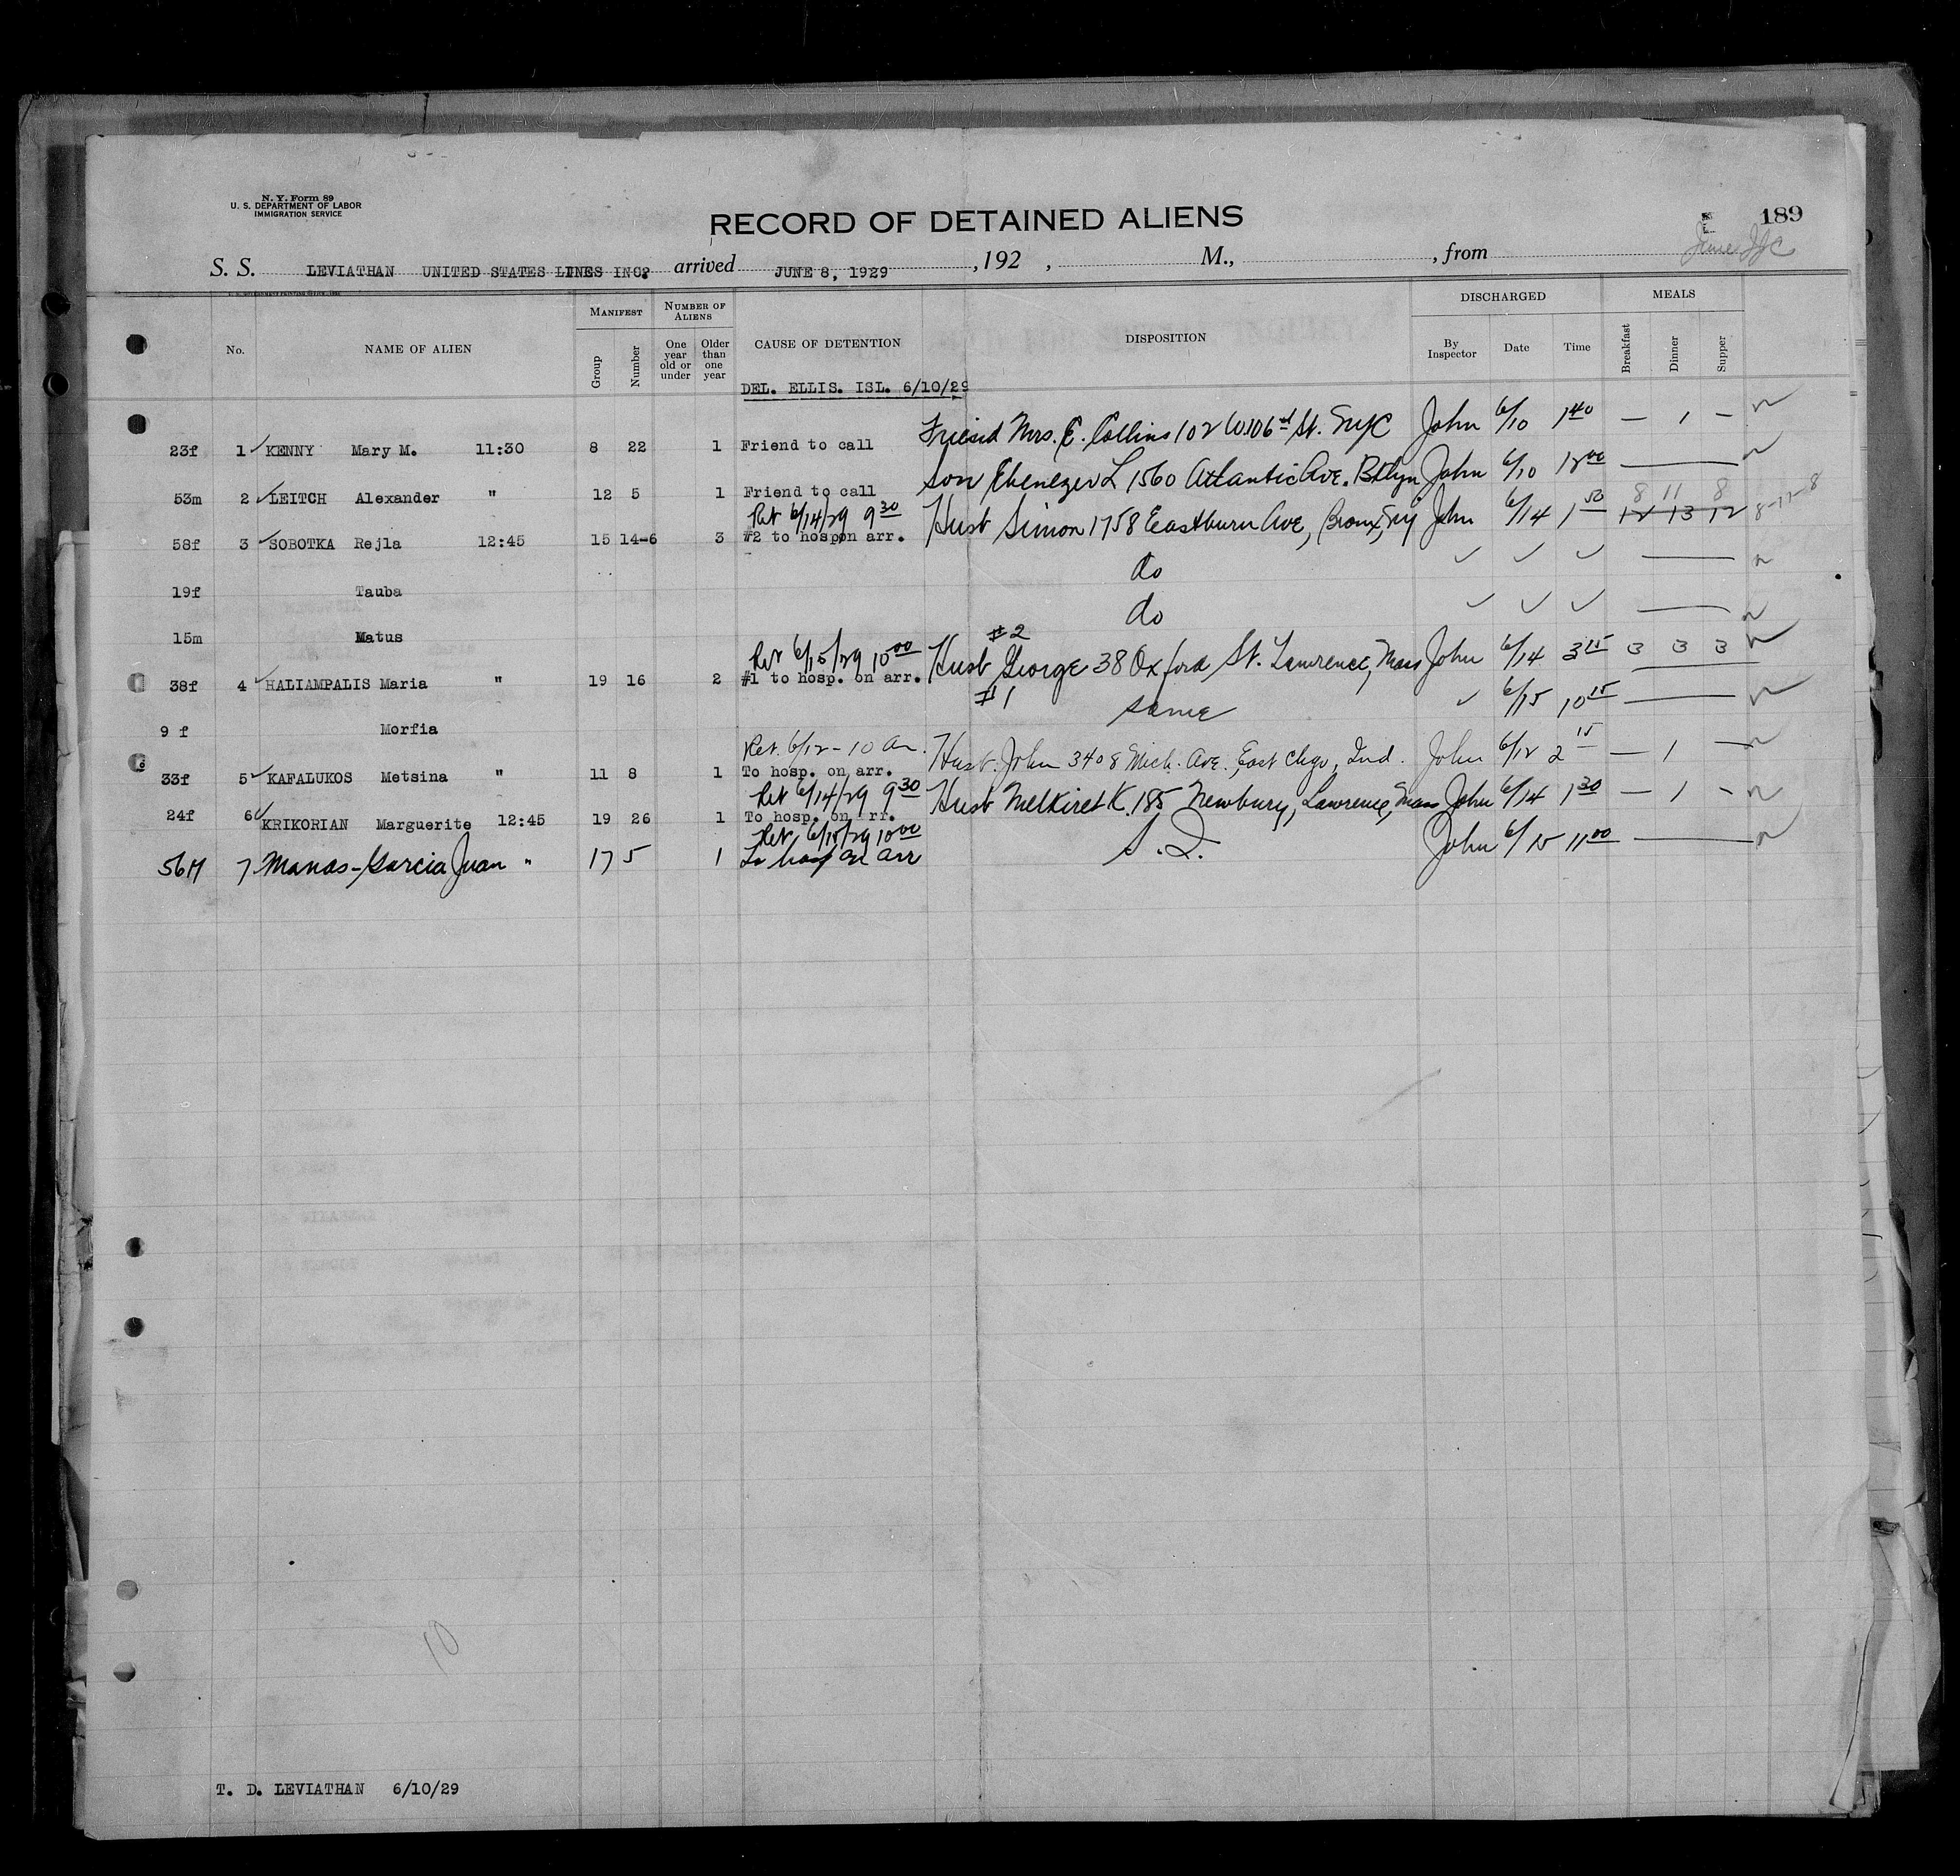 N. Y. Form 89
U. S. DEPARTMENT OF LABOR
IMMIGRATION SERVICE
RECORD OF DETAINED ALIENS
189
S. S. LEVIATHAN UNITED STATES LINES INC. arrived JUNE 8, 1929 , 192 , M., , from
No. NAME OF ALIEN MANIFEST Group Number NUMBER OF ALIENS One year old or under Older than one year CAUSE OF DETENTION DISPOSITION DISCHARGED By Inspector Date Time MEALS Breakfast Dinner Supper
DEL. ELLIS. ISL. 6/10/29
23f 1 KENNY Mary M. 11:30 8 22 1 Friend to call Friend Mrs. C. Collins 102 W 106 St. NYC John 6/10 1 40 — 1 —
53m 2 LEITCH Alexander " 12 5 1 Friend to call Son Ebenezer L 1560 Atlantic Ave. Bklyn John 6/10 12 00
Ret 6/14/29 9 30
58f 3 SOBOTKA Rejla 12:45 15 14-6 3 #2 to hosp on arr. Husb Simon 1758 Eastburn Ave, Bronx, NY John 6/14 1 50 8 11 8 12 13 12 8-11-8
19f Tauba do
15m Matus do
Ret 6/15/29 10 00 #2
38f 4 HALIAMPALIS Maria " 19 16 2 #1 to hosp. on arr. Husb George 38 Oxford St. Lawrence, Mass John 6/14 3 15 3 3 3
9 f Morfia #1 same 6/15 10 15
Ret. 6/12 - 10 am.
33f 5 KAFALUKOS Metsina " 11 8 1 To hosp. on arr. Husb. John 3408 Mich. Ave. East Chgo, Ind. John 6/12 2 15 — 1 —
Ret 6/14/29 9 30
24f 6 KRIKORIAN Marguerite 12:45 19 26 1 To hosp. on rr. Husb Melkiret K. 185 Newbury, Lawrence, Mass John 6/14 1 30 — 1 —
Ret. 6/15/29 10 00
56M 7 Manas-Garcia Juan " 17 5 1 To hosp on arr S. I. John 6/15 11 00
10
T. D. LEVIATHAN 6/10/29